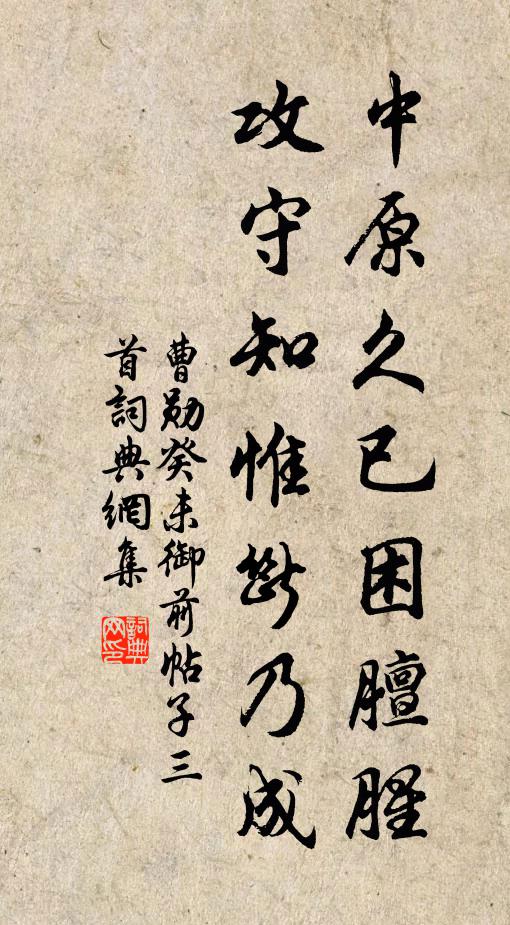 中原久已困膻腥
攻守知惟断乃成
曹勛癸未御前帖子三
首詞典網集
詞典網印